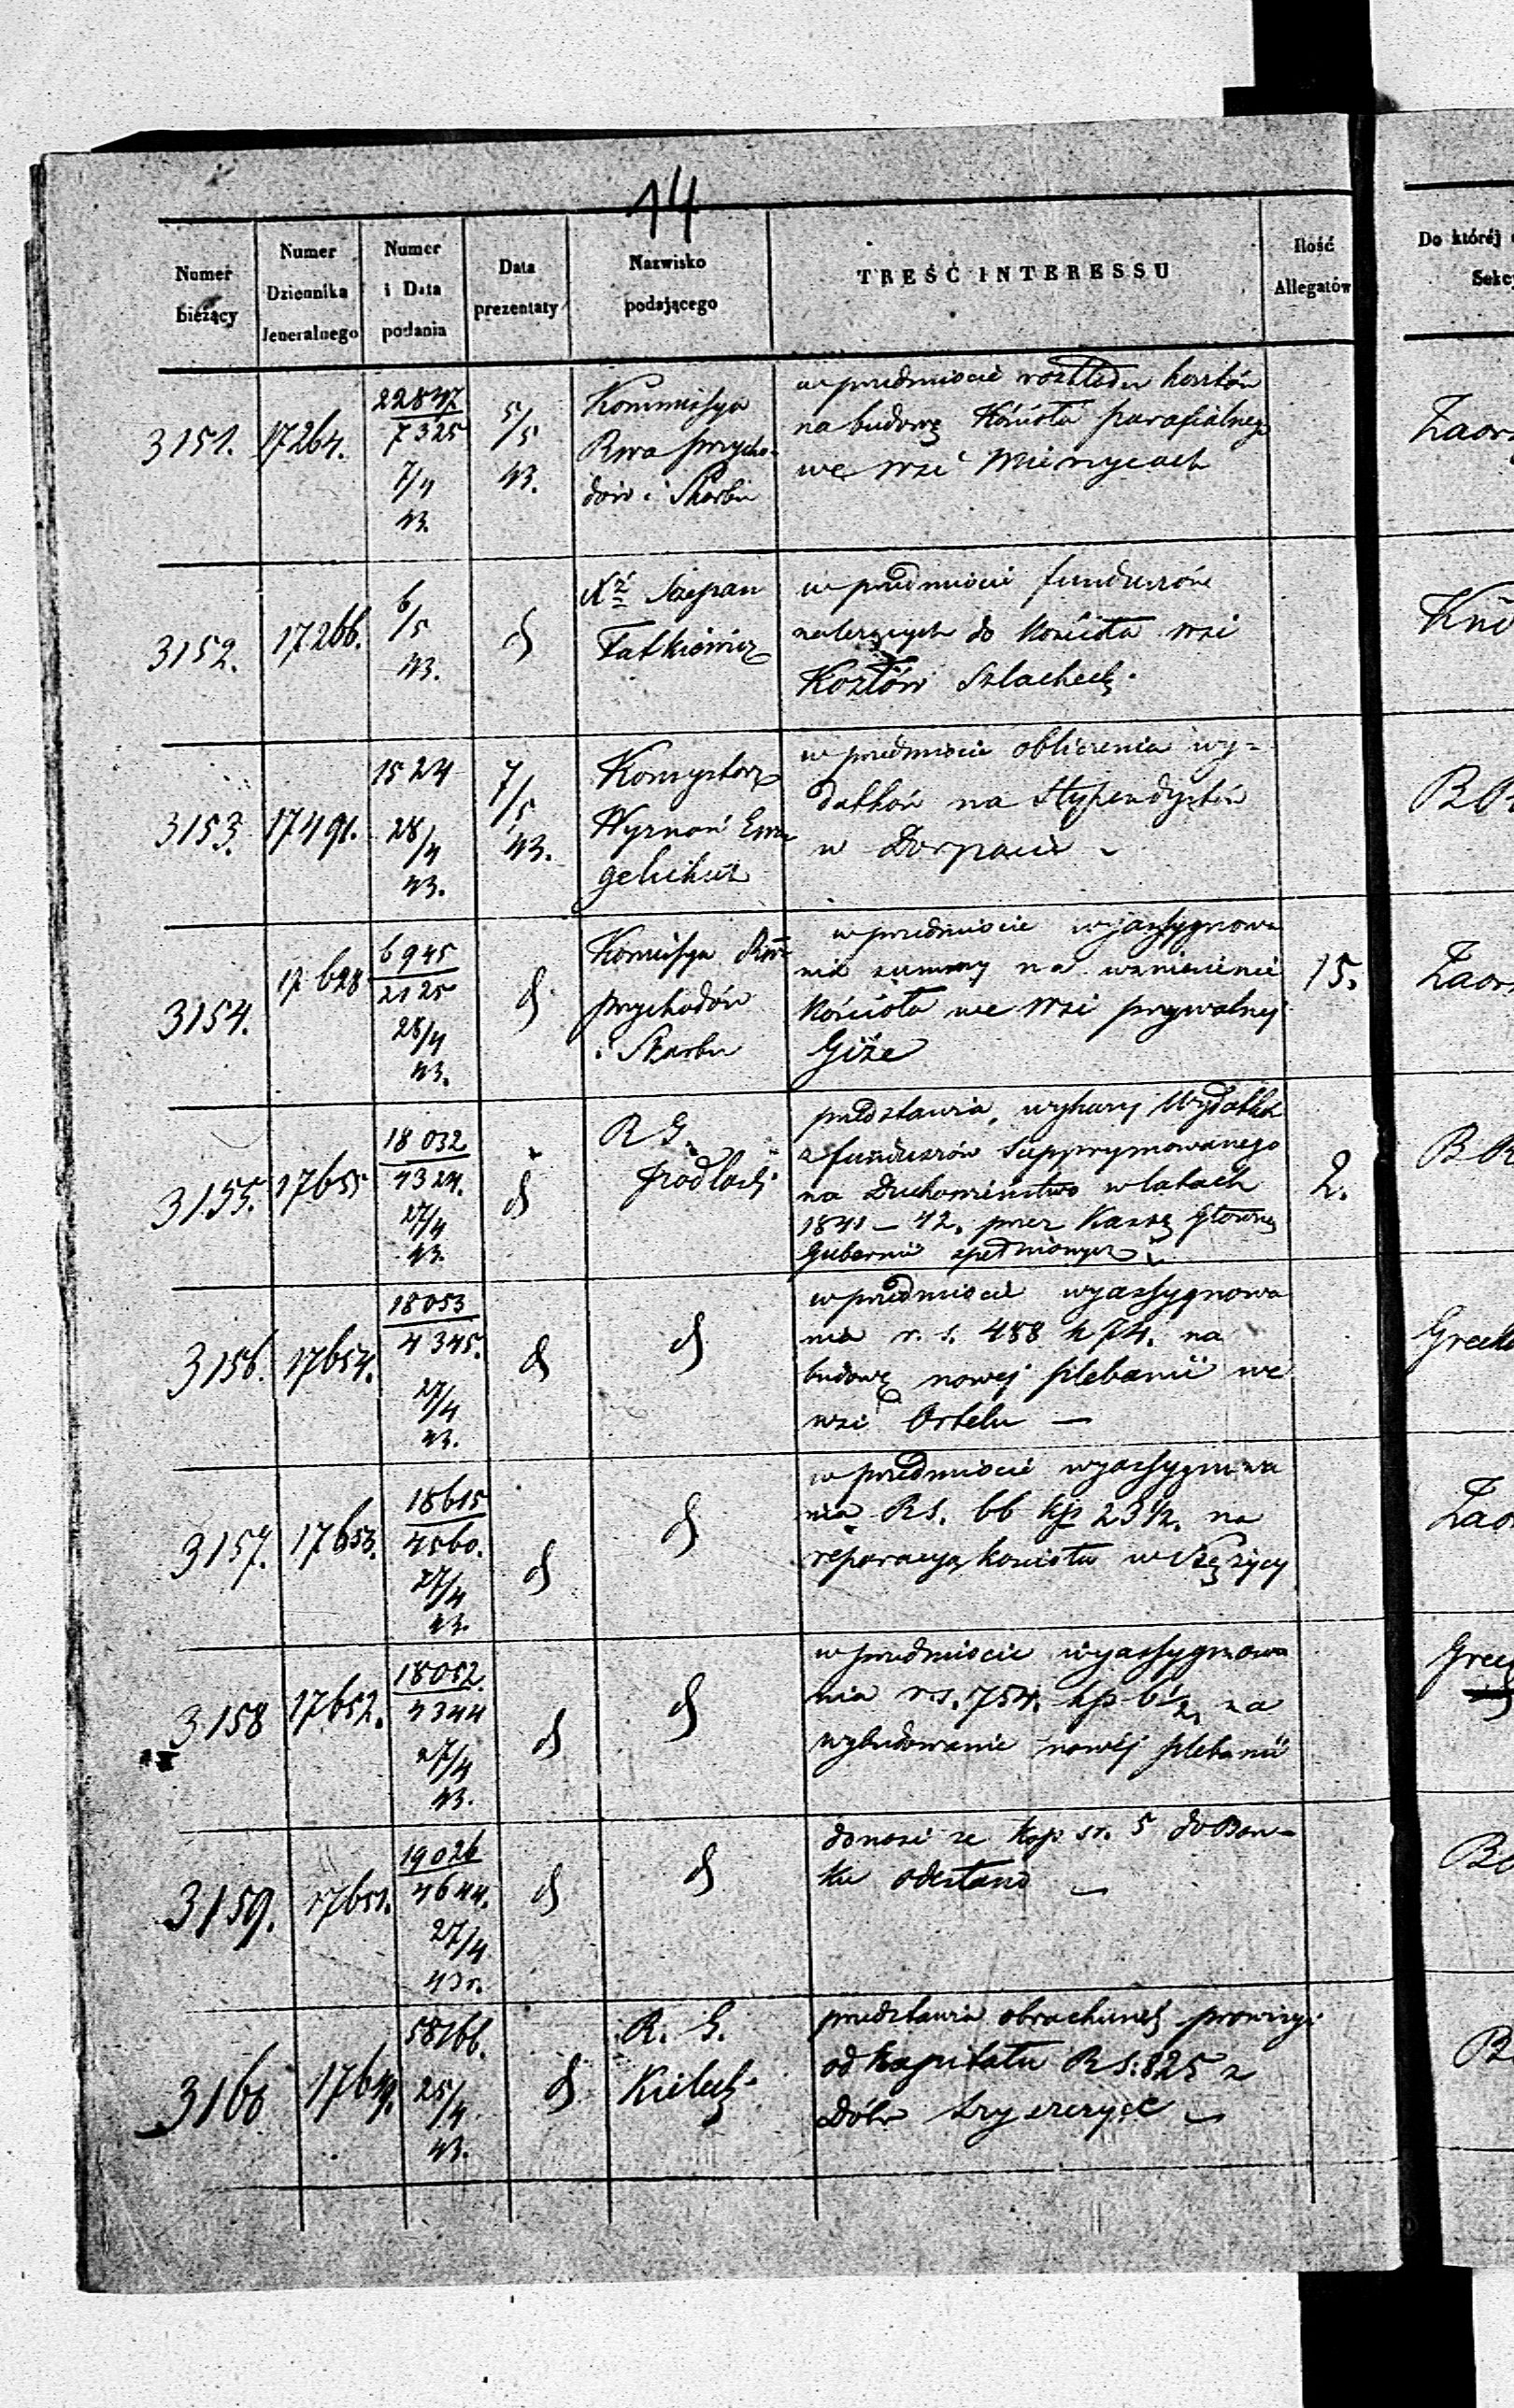 14
Numer bieżący
Numer Dziennika Jeneralnego
Numer i Data podania
Data prezentaty
Nazwisko podającego
TREŚĆ INTERESSU
Ilość Allegatów
Do której
3151. 17264.
22847
7325
7/4
43.
5/5
43.
Kommissya
Rwa przycho-
dów i Skarbu
w przedmiocie rozkładu kosztów
na budowę Kościoła parafialnego
we wsi
3152. 17266.
6/5
43.
d
Xź Szczepan
Fatkiewicz
w przedmiocie funduszów
należących do Kościoła wsi
Kozłów Szlacheck.
3153. 17491.
1524
28/4
43.
7/5
43.
Konsystorz
Wyznań Ewan
gelickich
w przedmiocie obliczenia wy-
datków na Stypendystów
w Dorpacie
3154. 17628
6945
2125
28/4
43.
d
Komissya
przychodów
i Skarbu
w przedmiocie wyassygnowa
nia summy na wzniesienie
Kościoła we wsi prywatnej
Giże
15.
3155. 17655
18032
4324.
27/4
43.
d
R G.
Podlaski
przedstawia, wykazy Wydatków
z funduszów Suppymowanego
na Duchowieństwo w latach
1841 – 42. przez Kassę Główną
Gubernii spełnionych
2.
3156. 17654.
18053
4345.
27/4
43.
d
d
w przedmiocie wyassygnowa
nia r. s. 488 k 74. na
budowę nowej plebanii we
wsi Ortelu —
3157. 17653.
18615
4560.
27/4
43.
d
d
w przedmiocie wyassygnowa
nia Rs. 66 kp 23½. na
reparacyą kościoła w
3158 17652.
18052.
4344
27/4
43.
d
d
w przedmiocie wyassygnowa
nia r.s. 754. kp 6½ na
wybudowanie nowej plebanii
3159. 17651.
19026
4644.
27/4
43 r.
d
d
donosi że kop. sr. 5 do Ban-
ku odesłano
3160 17649.
58166.
25/4
43.
d
R. G.
Kieleck.
przedstawia obrachunek prowizyi
od Kapitału Rs. 825 z
Dóbr